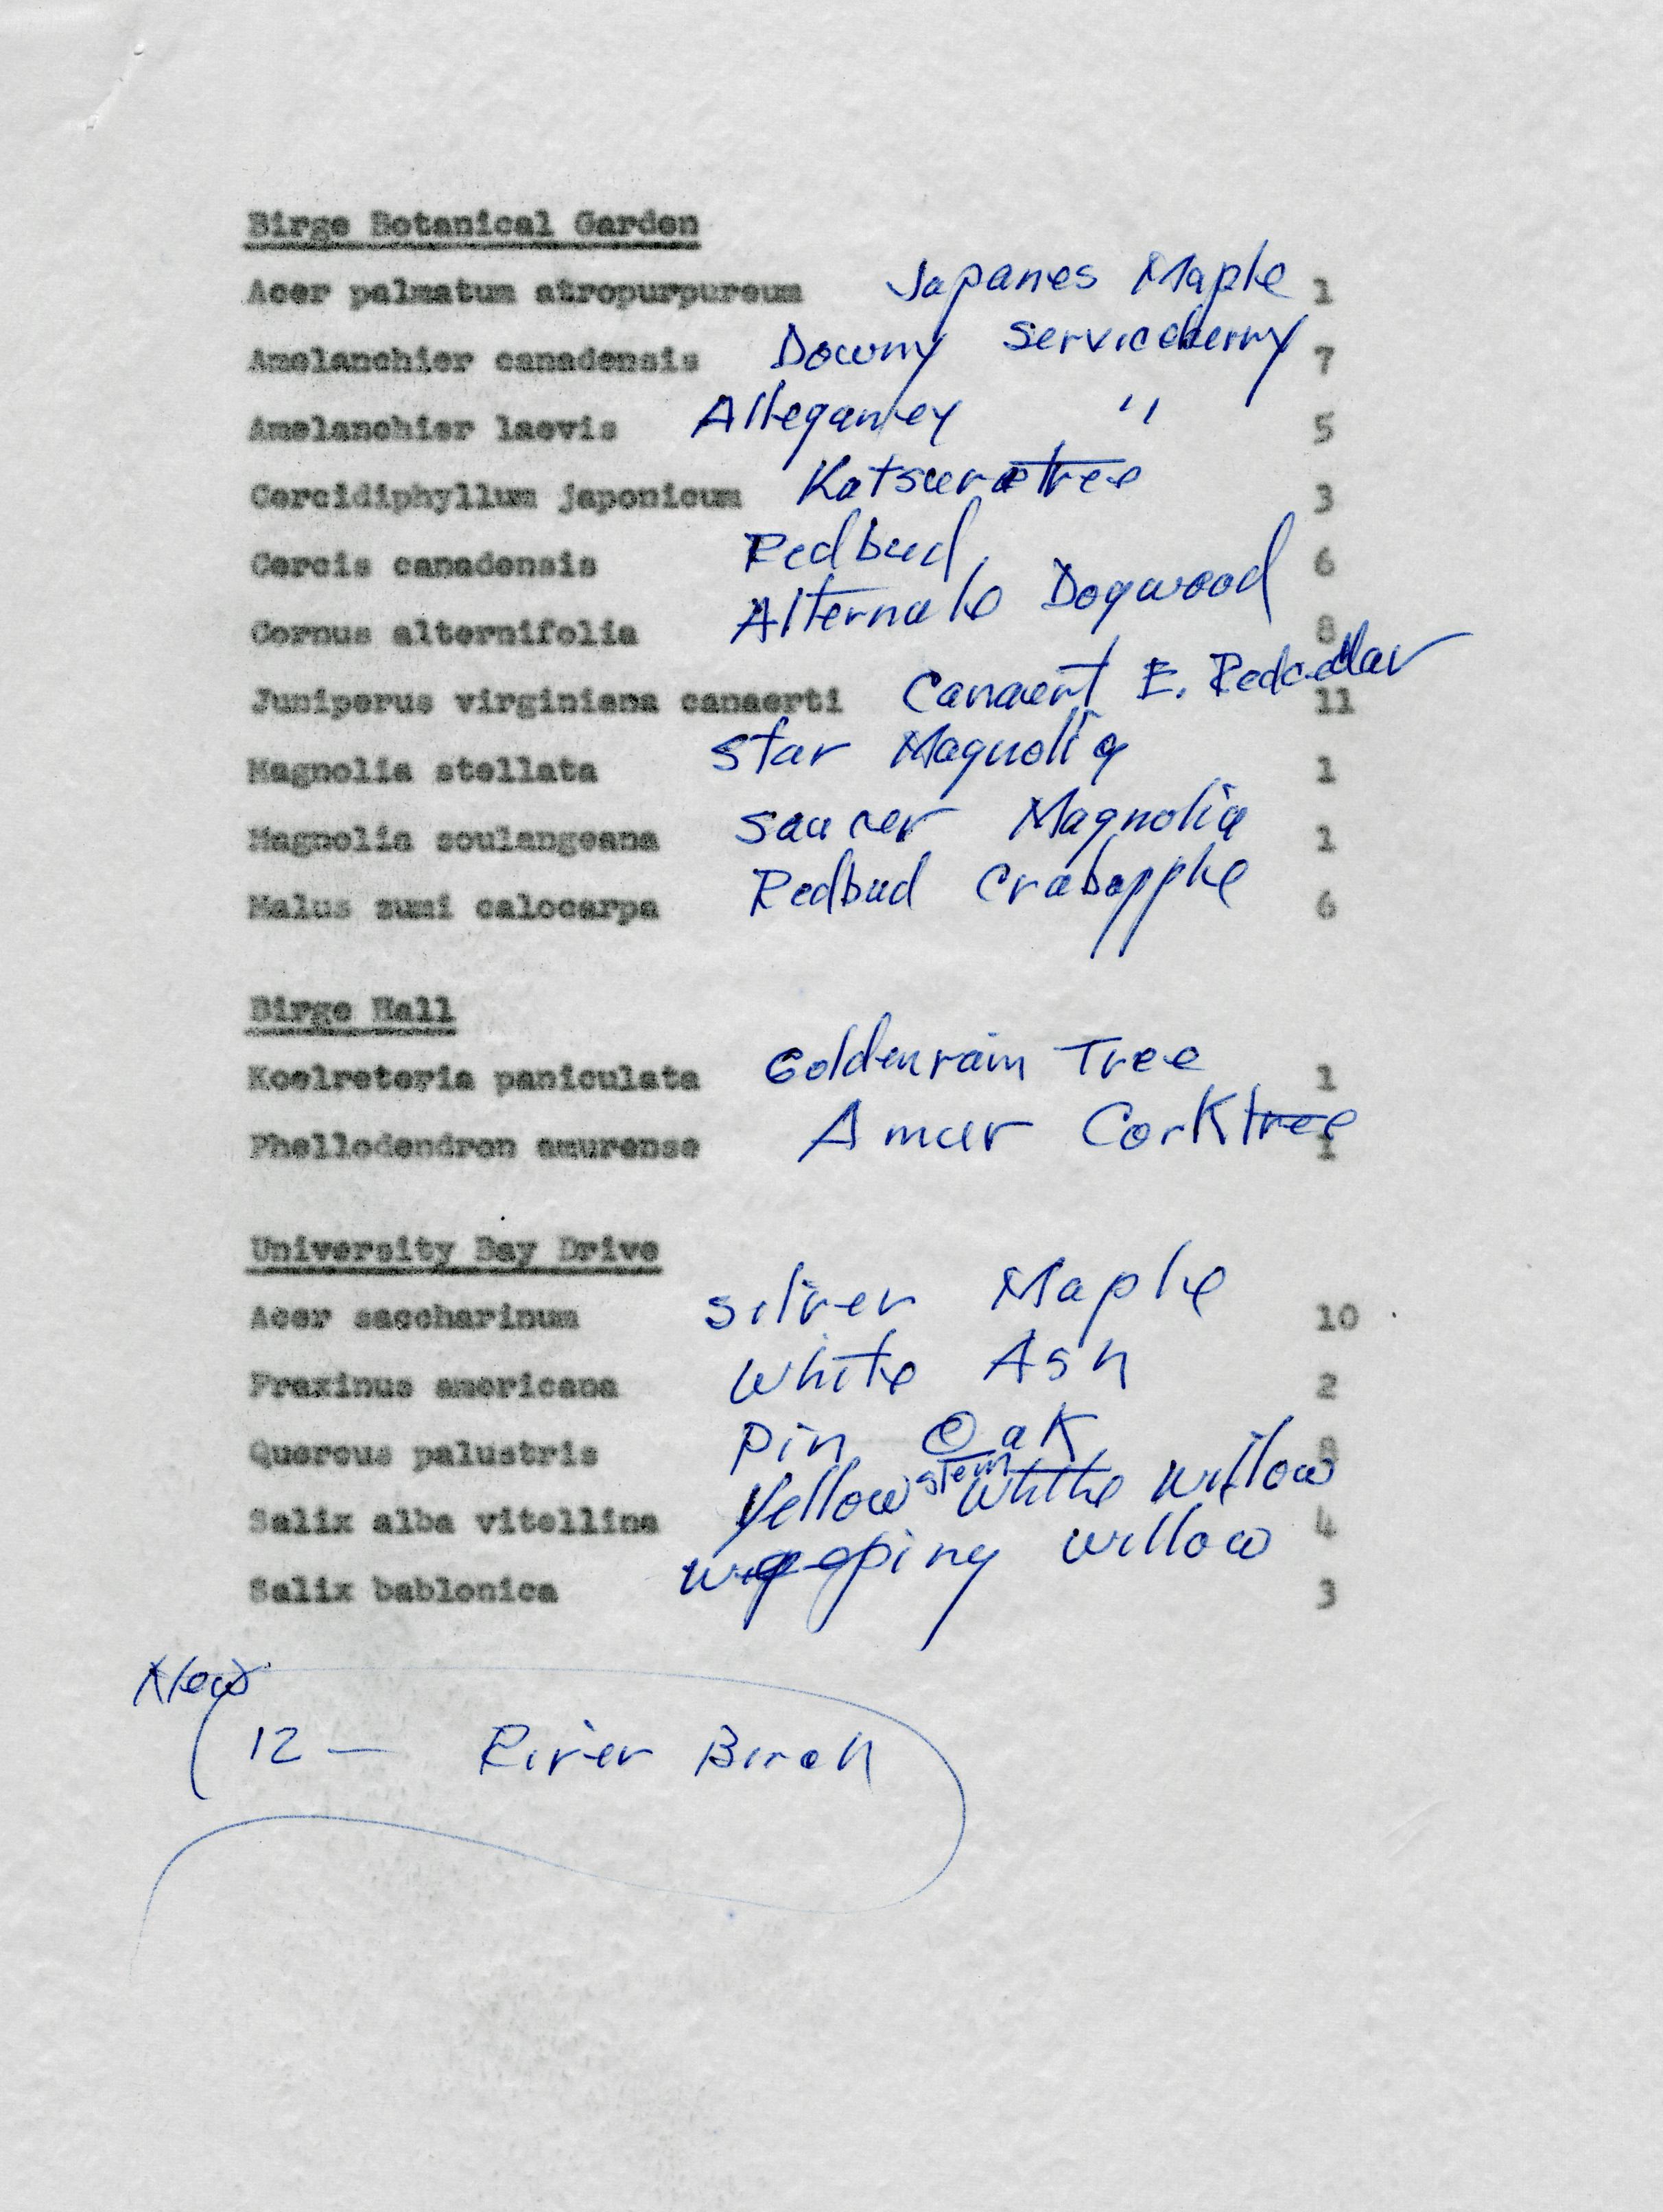 Birge Botanical Garden
Acer palmatum atropurpureum Japanes Maple 1
Amelanchier canadensis Downy Serviceberry 7
Amelanchier laevis Alleganey " 5
Cercidiphyllum japonicum Katsuratree 3
Cercis canadensis Redbud 6
Cornus alternifolia Alternate Dogwood 8
Juniperus virginiana canaerti Canaert E. Redcedar 11
Magnolia stellata Star Magnolia 1
Magnolia soulangeana Saucer Magnolia 1
Malus zumi calocarpa Redbud Crabapple 6
Birge Hall
Koelreteria paniculata Goldenrain Tree 1
Phellodendron amurense Amur Corktree 1
University Bay Drive
Acer saccharinum Silver Maple 10
Fraxinus americana White Ash 2
Quercus palustris Pin Oak 8
Salix alba vitellina Yellow stem White Willow 4
Salix bablonica Weeping Willow 3
New
12 — River Birch